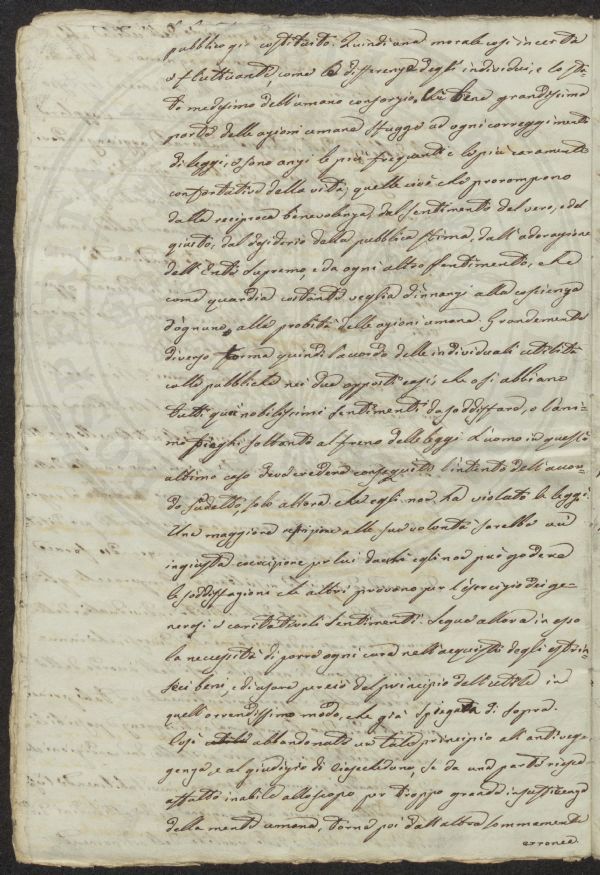 pubblico già costituito. Quindi una morale così incerta
e fluttuante come le differenze degli individui, e lo sta-
to medesimo dell'umano consorzio. Chè bene grandissima
parte delle azioni umane sfugge ad ogni correggimento
di leggi; e sono anzi le più frequenti e le più caramente
confortative della vita; quelle cioè che prorompono
dalla reciproca benevolenza, dal sentimento del vero, e del
giusto, dal desiderio della pubblica stima, dall'adorazione
dell'Ente Supremo, e da ogni altro sentimento, che
come guardia costante veglia dinnanzi alla coscienza
d'ognuno, alla probità delle azioni umane. Grandemente
diverso torna quindi l'accordo delle individuali utilità
colle pubbliche nei due opposti casi, che o si abbiano
tutti que' nobilissimi sentimenti da soddisfare, o l'ani-
mo pieghi soltanto al freno delle leggi. L'uomo in quest'
ultimo caso deve credere conseguito l'intento dell'accor-
do sudetto solo allora che egli non ha violate le leggi.
Una maggiore alle sue volontà sarebbe un'
ingiusta coercizione per lui dacchè egli non può godere
le soddisfazioni che altri provano per l'esercizio dei ge-
nerosi e caritatevoli sentimenti. Segue allora in esso
la necessità di porre ogni cura nell'acquisto degli estrin-
seci beni, e di usare perciò del principio dell'utile in
quell'orrendissimo modo, che già spiegato di sopra.
Così abbandonato un tale principio all'
genza, e al giudizio di ciascheduno, se da una parte riesce
affatto inabile allo scopo per troppo grande insufficienza
della mente umana, torna poi dall'altra sommamente
erronea.